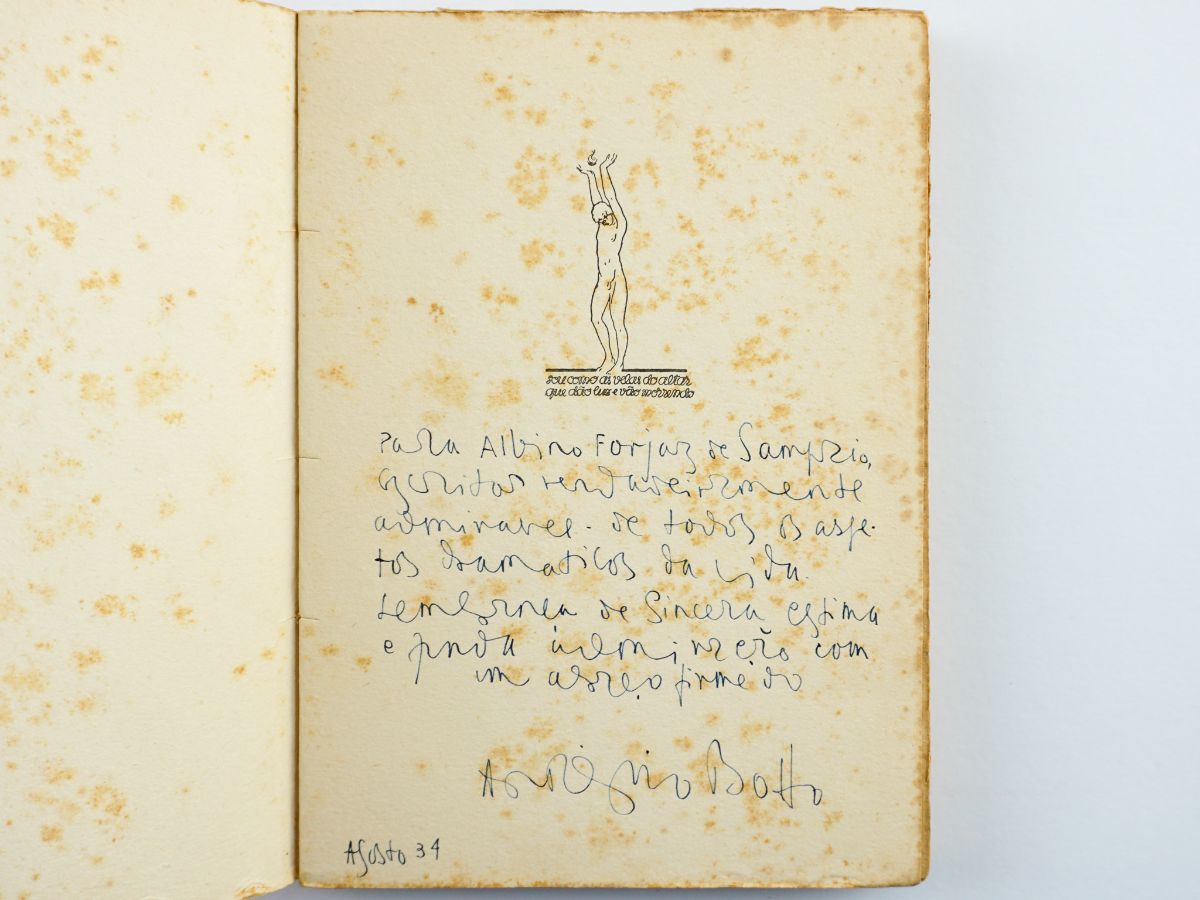 sou como as velas do altar
que dão luz e vão morrendo
Para Albino Forjaz de Sampaio,
escritor verdadeiramente
admiravel - de todos os aspe-
tos dramaticos da vida.
Lembrança de sincera estima
e funda admiração com
um abraço firme do
António Botto
Agosto 34